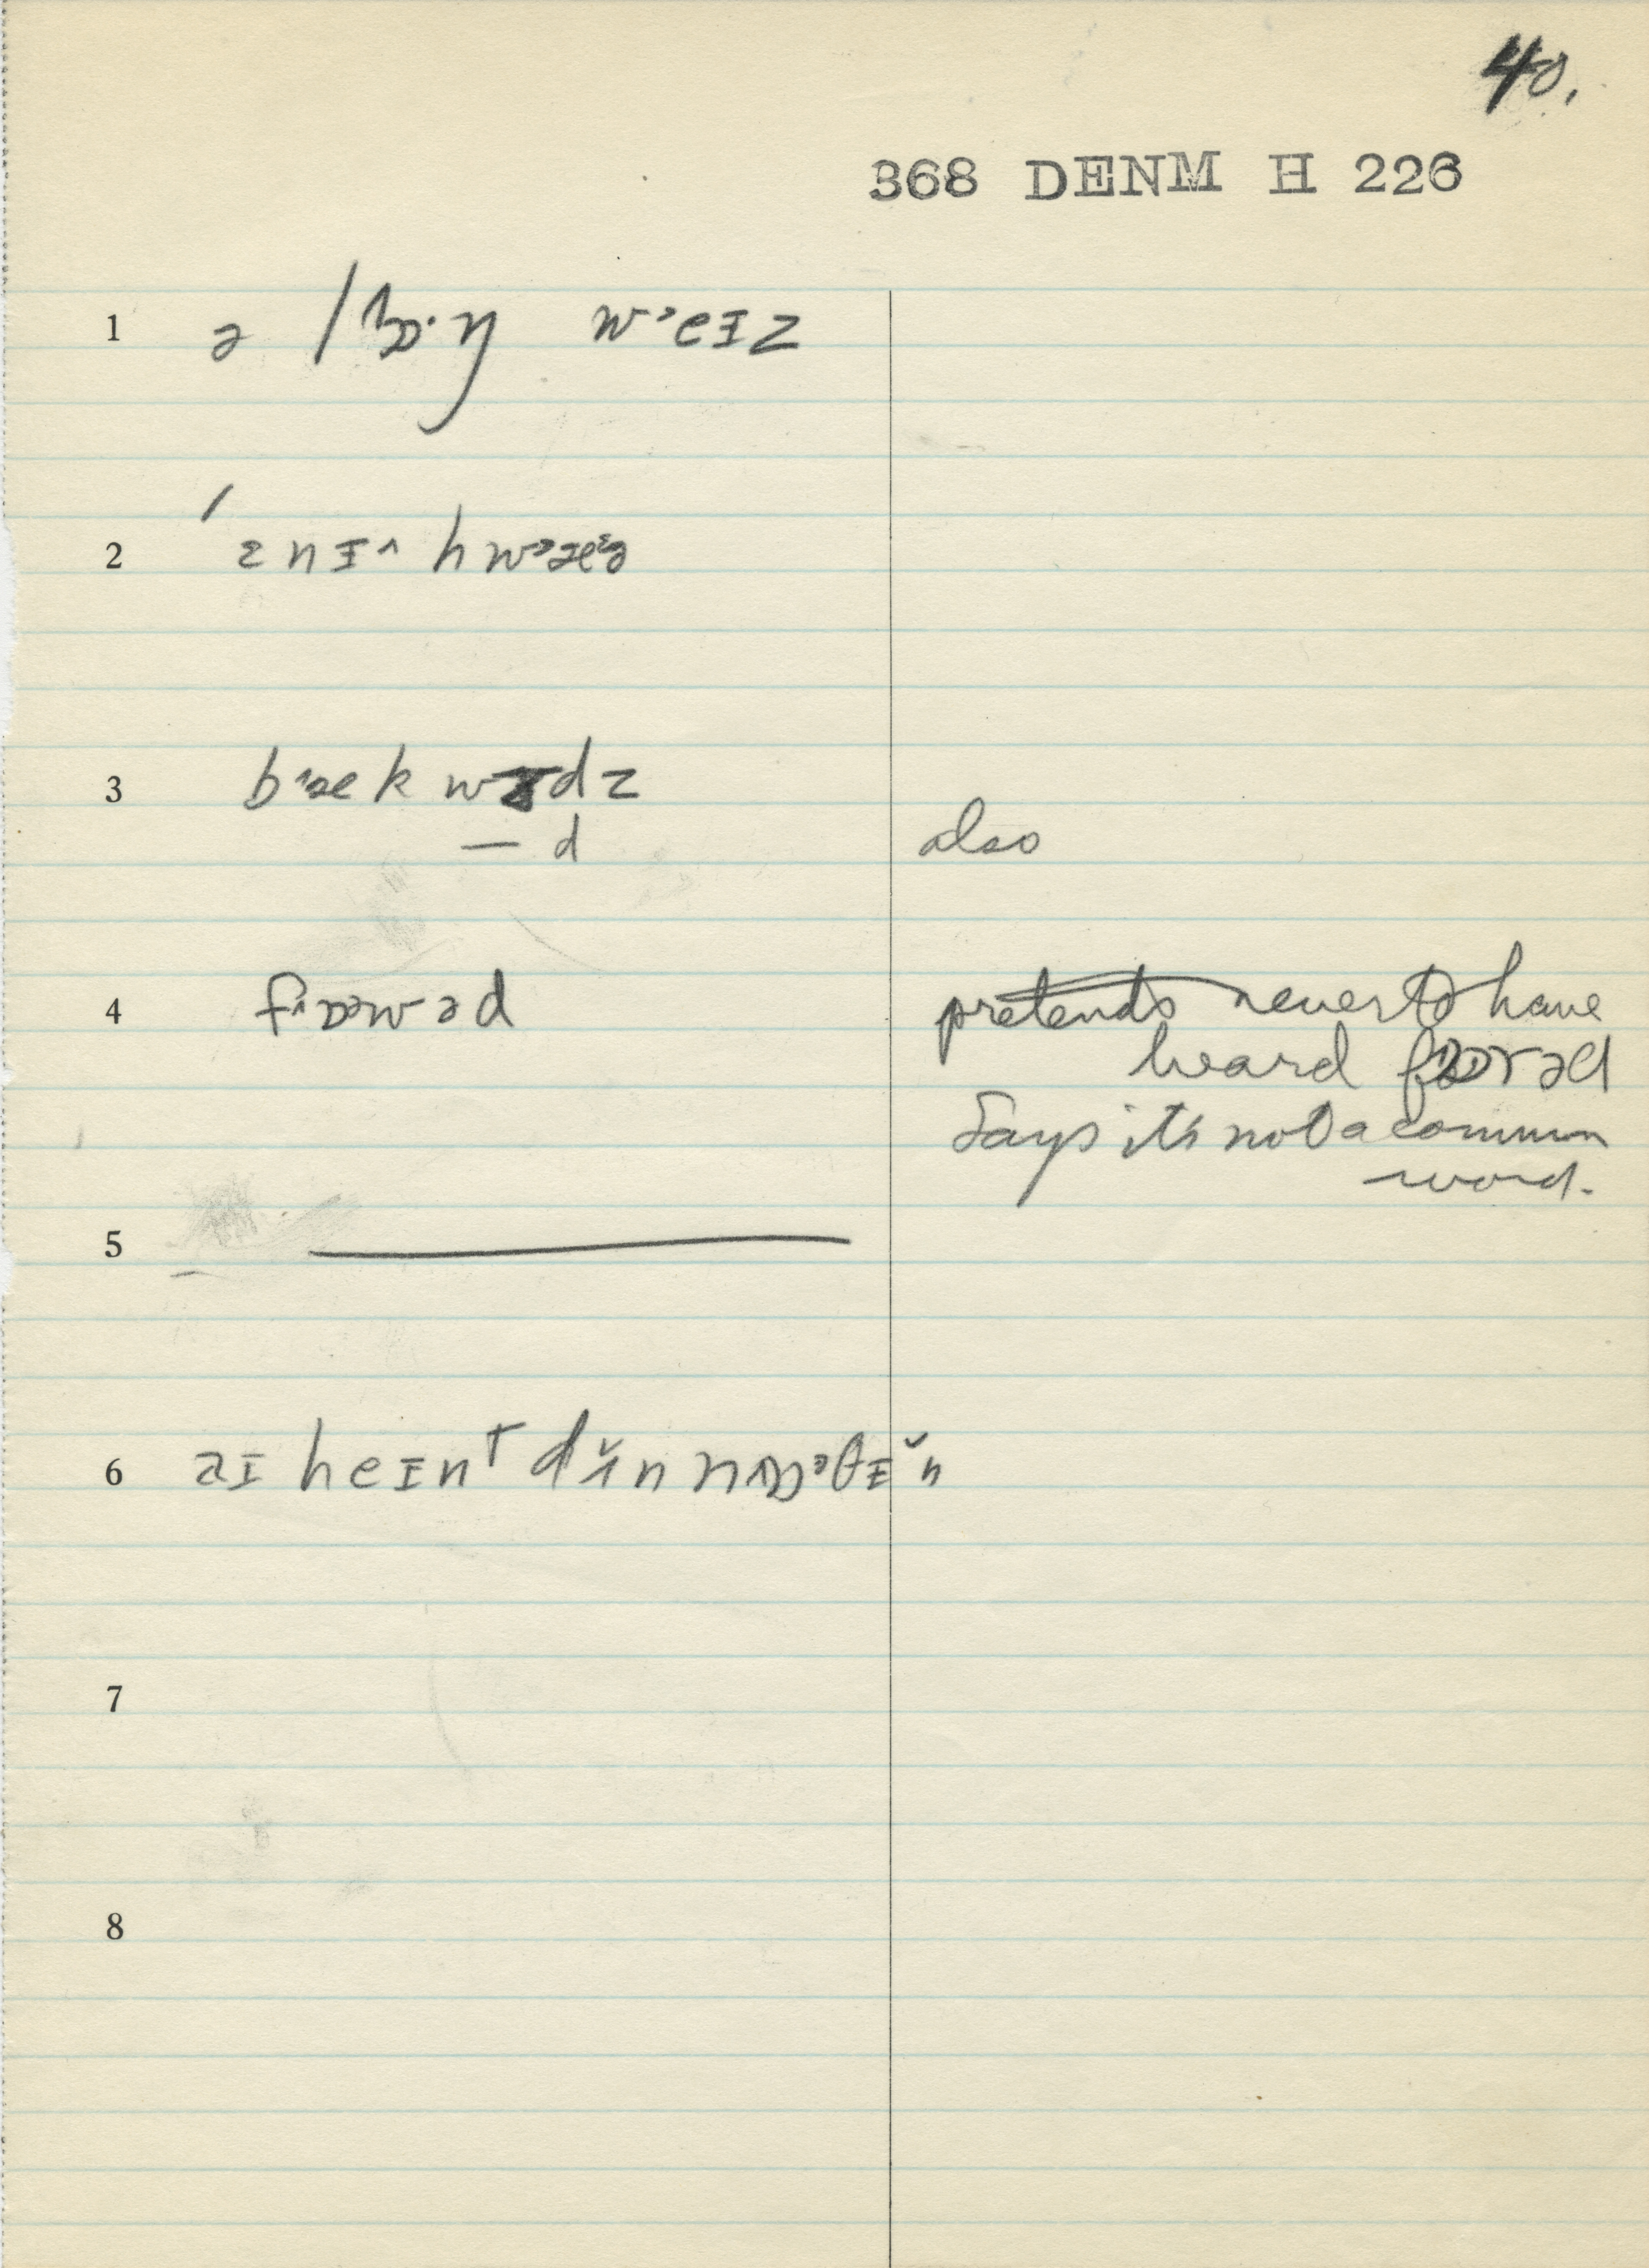 40.
368 DENM H 226
1 ə lɒ·ŋ wᵊeɪz
2
3 b^æk wədz
— d also
4 f^ɒəwəd pretends never to have
heard fɒrəd
Says it's not a common
word.
5 ———
6 aɪ heɪnᵗ dʌ̆n n^ɒᵊθɪ̆n
7
8